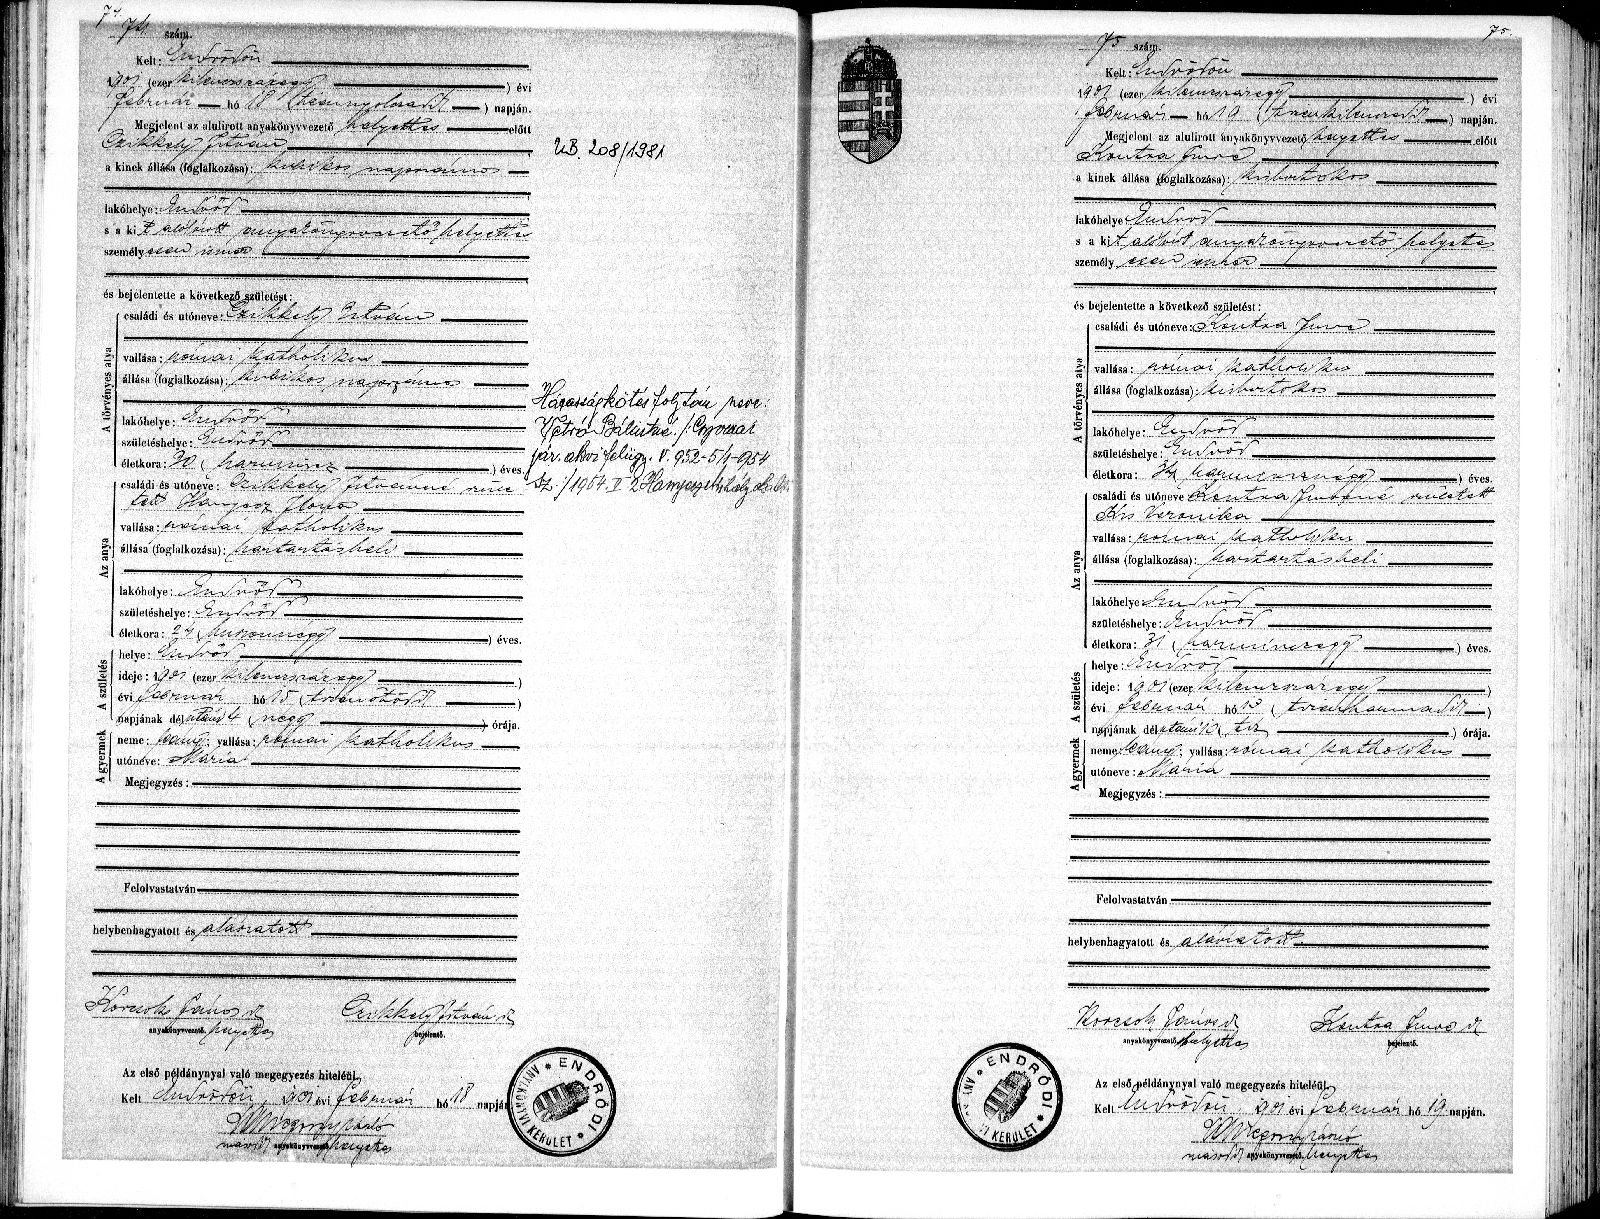 74
74 szám.
Kelt: Endrődön
1901 (ezer kilenczszázegy) évi
február hó 18 (tizennyolczadik) napján.
Megjelent az alulirott anyakönyvvezető helyettes előtt
Czikkely István
a kinek állása (foglalkozása): kubikos napszámos
lakóhelye: Endrőd
s a kit alólírott anyakönyvvezető helyettes
személyesen ismer
és bejelentette a következő születést:
A törvényes atya
családi és utóneve: Czikkely István
vallása: római katholikus
állása (foglalkozása): kubikos napszámos
lakóhelye: Endrőd
születéshelye: Endrőd
életkora: 30 (harmincz) éves.
Az anya
családi és utóneve: Czikkely Istvánné szüle
tett Ilona
vallása: római katholikus
állása (foglalkozása): háztartásbeli
lakóhelye: Endrőd
születéshelye: Endrőd
életkora: 24 (huszonnégy) éves.
A születés
helye: Endrőd
ideje: 1901 (ezer kilenczszázegy)
évi február hó 15 (tizenötödik)
napjának délután 4 (négy) órája.
A gyermek
neme: leány; vallása: római katholikus
utóneve: Mária
Megjegyzés:
Felolvastatván
helybenhagyatott és aláiratott
Korcsok János sk
anyakönyvvezető. helyettes
Czikkely István sk
bejelentő.
Az első példánynyal való megegyezés hiteléül.
Kelt Endrődön, 1901 évi február hó 18 napján
másod anyakönyvvezető. helyettes
ENDRŐDI ANYAKÖNYVI KERÜLET
U.B. 208/1981
Házasságkötés folytán neve:
Vetró Bálintné. /:
V. 952-5/1-954
sz:/ 1964. V. 2.
75.
75 szám.
Kelt: Endrődön
1901 (ezer kilenczszázegy) évi
február hó 19 (tizenkilenczedik) napján.
Megjelent az alulirott anyakönyvvezető helyettes előtt
Kontra Imre
a kinek állása (foglalkozása): kisbirtokos
lakóhelye: Endrőd
s a kit alólírt anyakönyvvezető helyettes
személyesen ismer
és bejelentette a következő születést:
A törvényes atya
családi és utóneve: Kontra Imre
vallása: római katholikus
állása (foglalkozása): kisbirtokos
lakóhelye: Endrőd
születéshelye: Endrőd
életkora: 34 (harmincznégy) éves.
Az anya
családi és utóneve Kontra Imréné született
Kis Veronika
vallása: római katholikus
állása (foglalkozása): háztartásbeli
lakóhelye: Endrőd
születéshelye: Endrőd
életkora: 31 (harminczegy) éves.
A születés
helye: Endrőd
ideje: 1901 (ezer kilenczszázegy)
évi február hó 13 (tizenharmadik)
napjának délután 10 (tíz) órája.
A gyermek
neme: leány; vallása: római katholikus
utóneve: Mária
Megjegyzés:
Felolvastatván
helybenhagyatott és aláiratott
Korcsok János sk
anyakönyvvezető. helyettes
Kontra Imre sk
bejelentő.
Az első példánynyal való megegyezés hiteléül.
Kelt Endrődön, 1901 évi február hó 19 napján.
másod anyakönyvvezető. helyettes
ENDRŐDI ANYAKÖNYVI KERÜLET